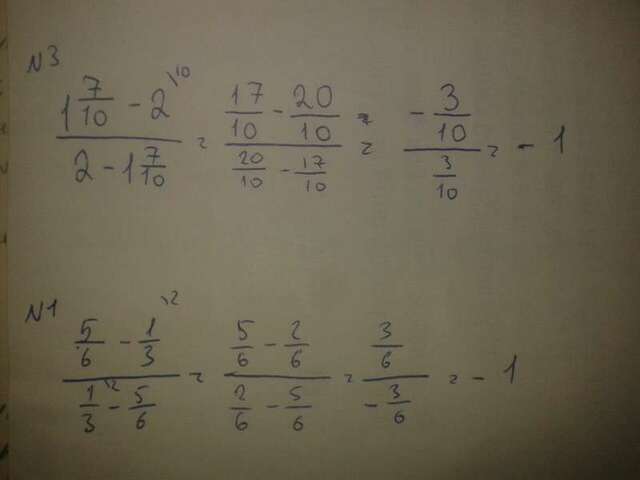 N3
1 7/10 - 2 \10 / 2 - 1 7/10 = 17/10 - 20/10 / 20/10 - 17/10 = - 3/10 / 3/10 = - 1
N1
5/6 - 1/3 \2 / 1/3 \2 - 5/6 = 5/6 - 2/6 / 2/6 - 5/6 = 3/6 / - 3/6 = - 1